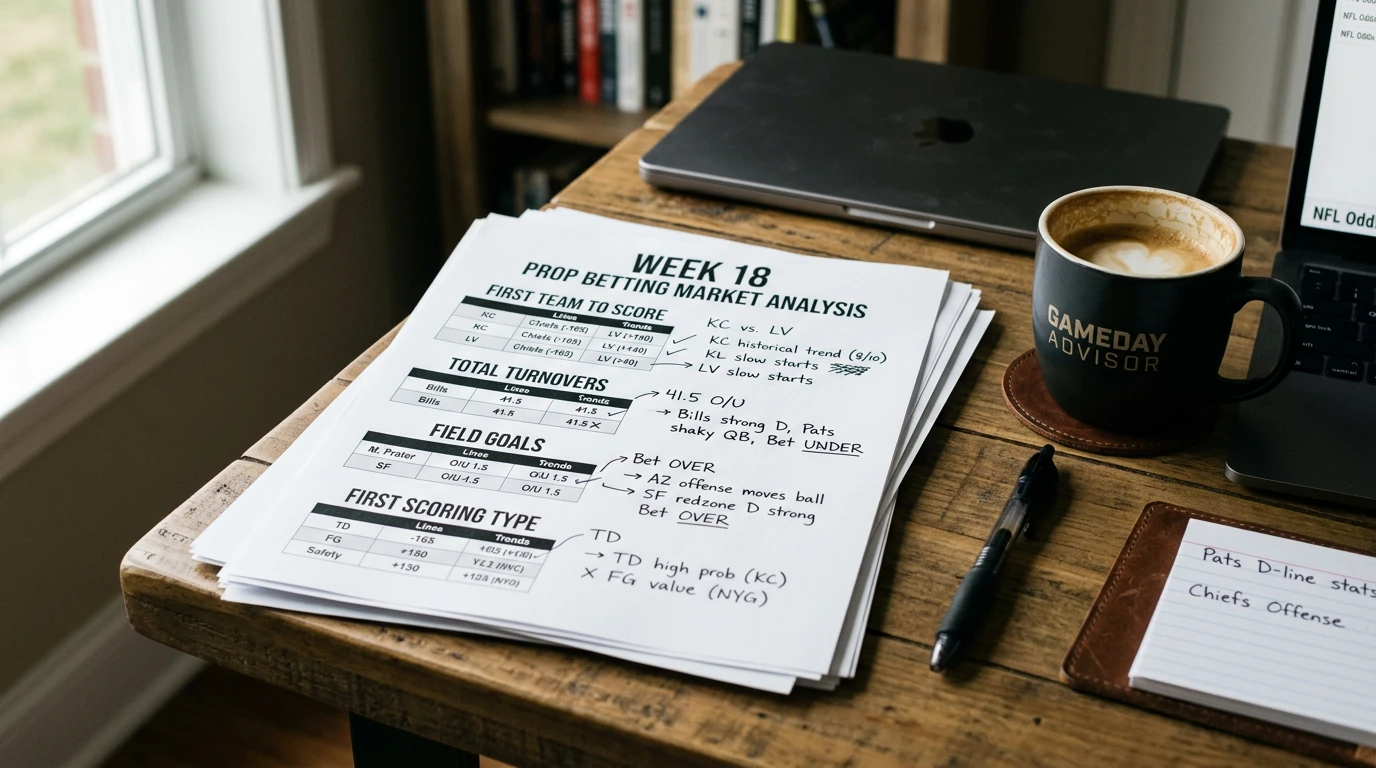 WEEK 18
PROP BETTING MARKET ANALYSIS
FIRST TEAM TO SCORE
Lines Trends
KC Chiefs (-165)
KC Chiefs (-165)
LV (-165)
KC vs. LV
KC historical trend (9/10)
KL slow starts
LV slow starts
TOTAL TURNOVERS
Lines Trends
Bills 41.5 41.5
Bills 41.5 41.5 X
41.5 O/U
→ Bills strong D, Pats
shaky QB, Bet UNDER
FIELD GOALS
Lines Trends
M. Prater O/U 1.5 O/U 1.5
SF O/U 1.5 O/U 1.5
Bet OVER
→ AZ offense moves ball
SF redzone D strong
Bet OVER
FIRST SCORING TYPE
Lines Trends
TD -165
FG +180
Safety +130
TD
→ TD high prob (KC)
X FG value (NYG)
GAMEDAY
ADVISOR
NFL Odd
Pats D-line stats
Chiefs Offense